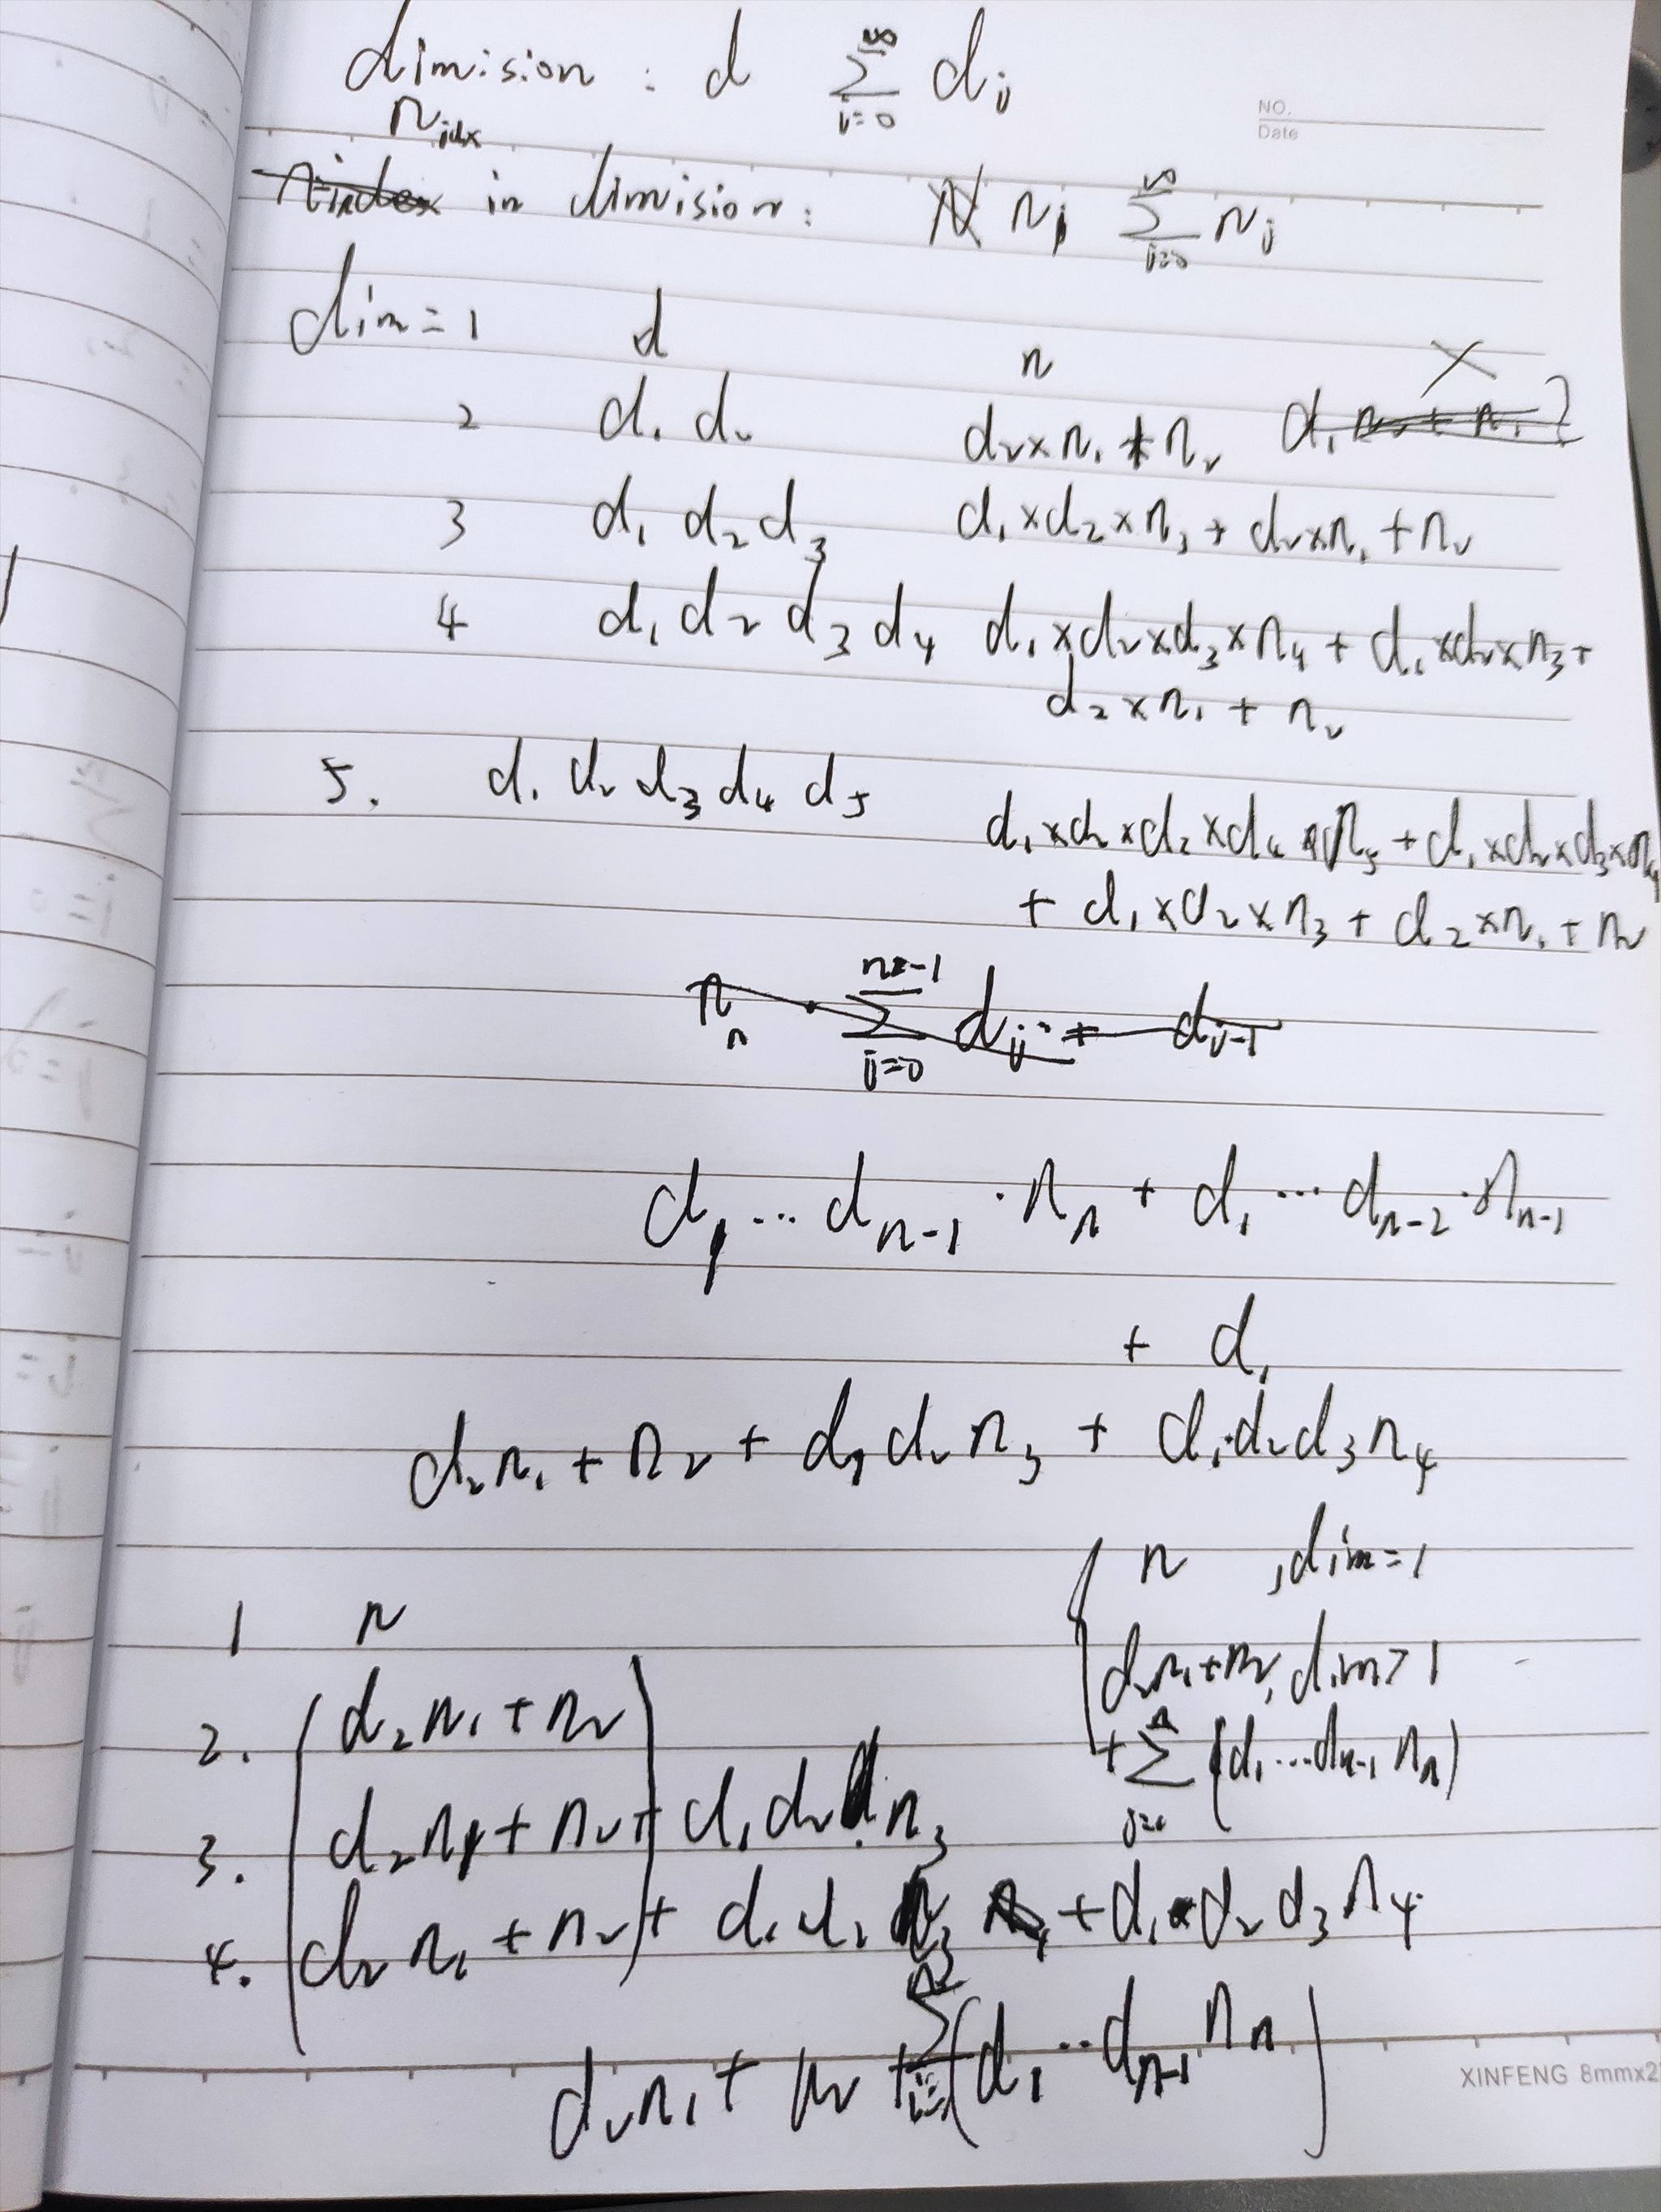 dimision : d ∑_{i=0}^{∞} d_i
NO.
Date
n_idx
nindex in dimision: N n_i ∑_{i=0}^{∞} n_i
dim = 1 d n ×
2 d₁ d₂ d₂×n₁ + n₂ d₁ n₂ + n₁ ?
3 d₁ d₂ d₃ d₁×d₂×n₃ + d₂×n₁ + n₂
4 d₁ d₂ d₃ d₄ d₁×d₂×d₃×n₄ + d₁×d₂×n₃ +
d₂×n₁ + n₂
5. d₁ d₂ d₃ d₄ d₅
d₁×d₂×d₂×d₄×n₅ + d₁×d₂×d₃×n₄
+ d₁×d₂×n₃ + d₂×n₁ + n₂
n_n · ∑_{i=0}^{n-1} d_i + d_{i-1}
d₁ ... d_{n-1} · n_n + d₁ ... d_{n-2} · n_{n-1}
+ d₁
d₂n₁ + n₂ + d₁d₂n₃ + d₁·d₂d₃n₄
n , dim=1
1 n
d₂n₁+n₂, dim>1
2. d₂n₁ + n₂
+ ∑ (d₁...d_{n-1} n_n)
3. d₂n₁ + n₂ + d₁d₂ n₃
4. d₂n₁ + n₂ + d₁d₂ n₃ + d₁d₂d₃n₄
d₂n₁ + n₂ + ∑ (d₁ .. d_{n-1} n_n)
XINFENG 8mmx2